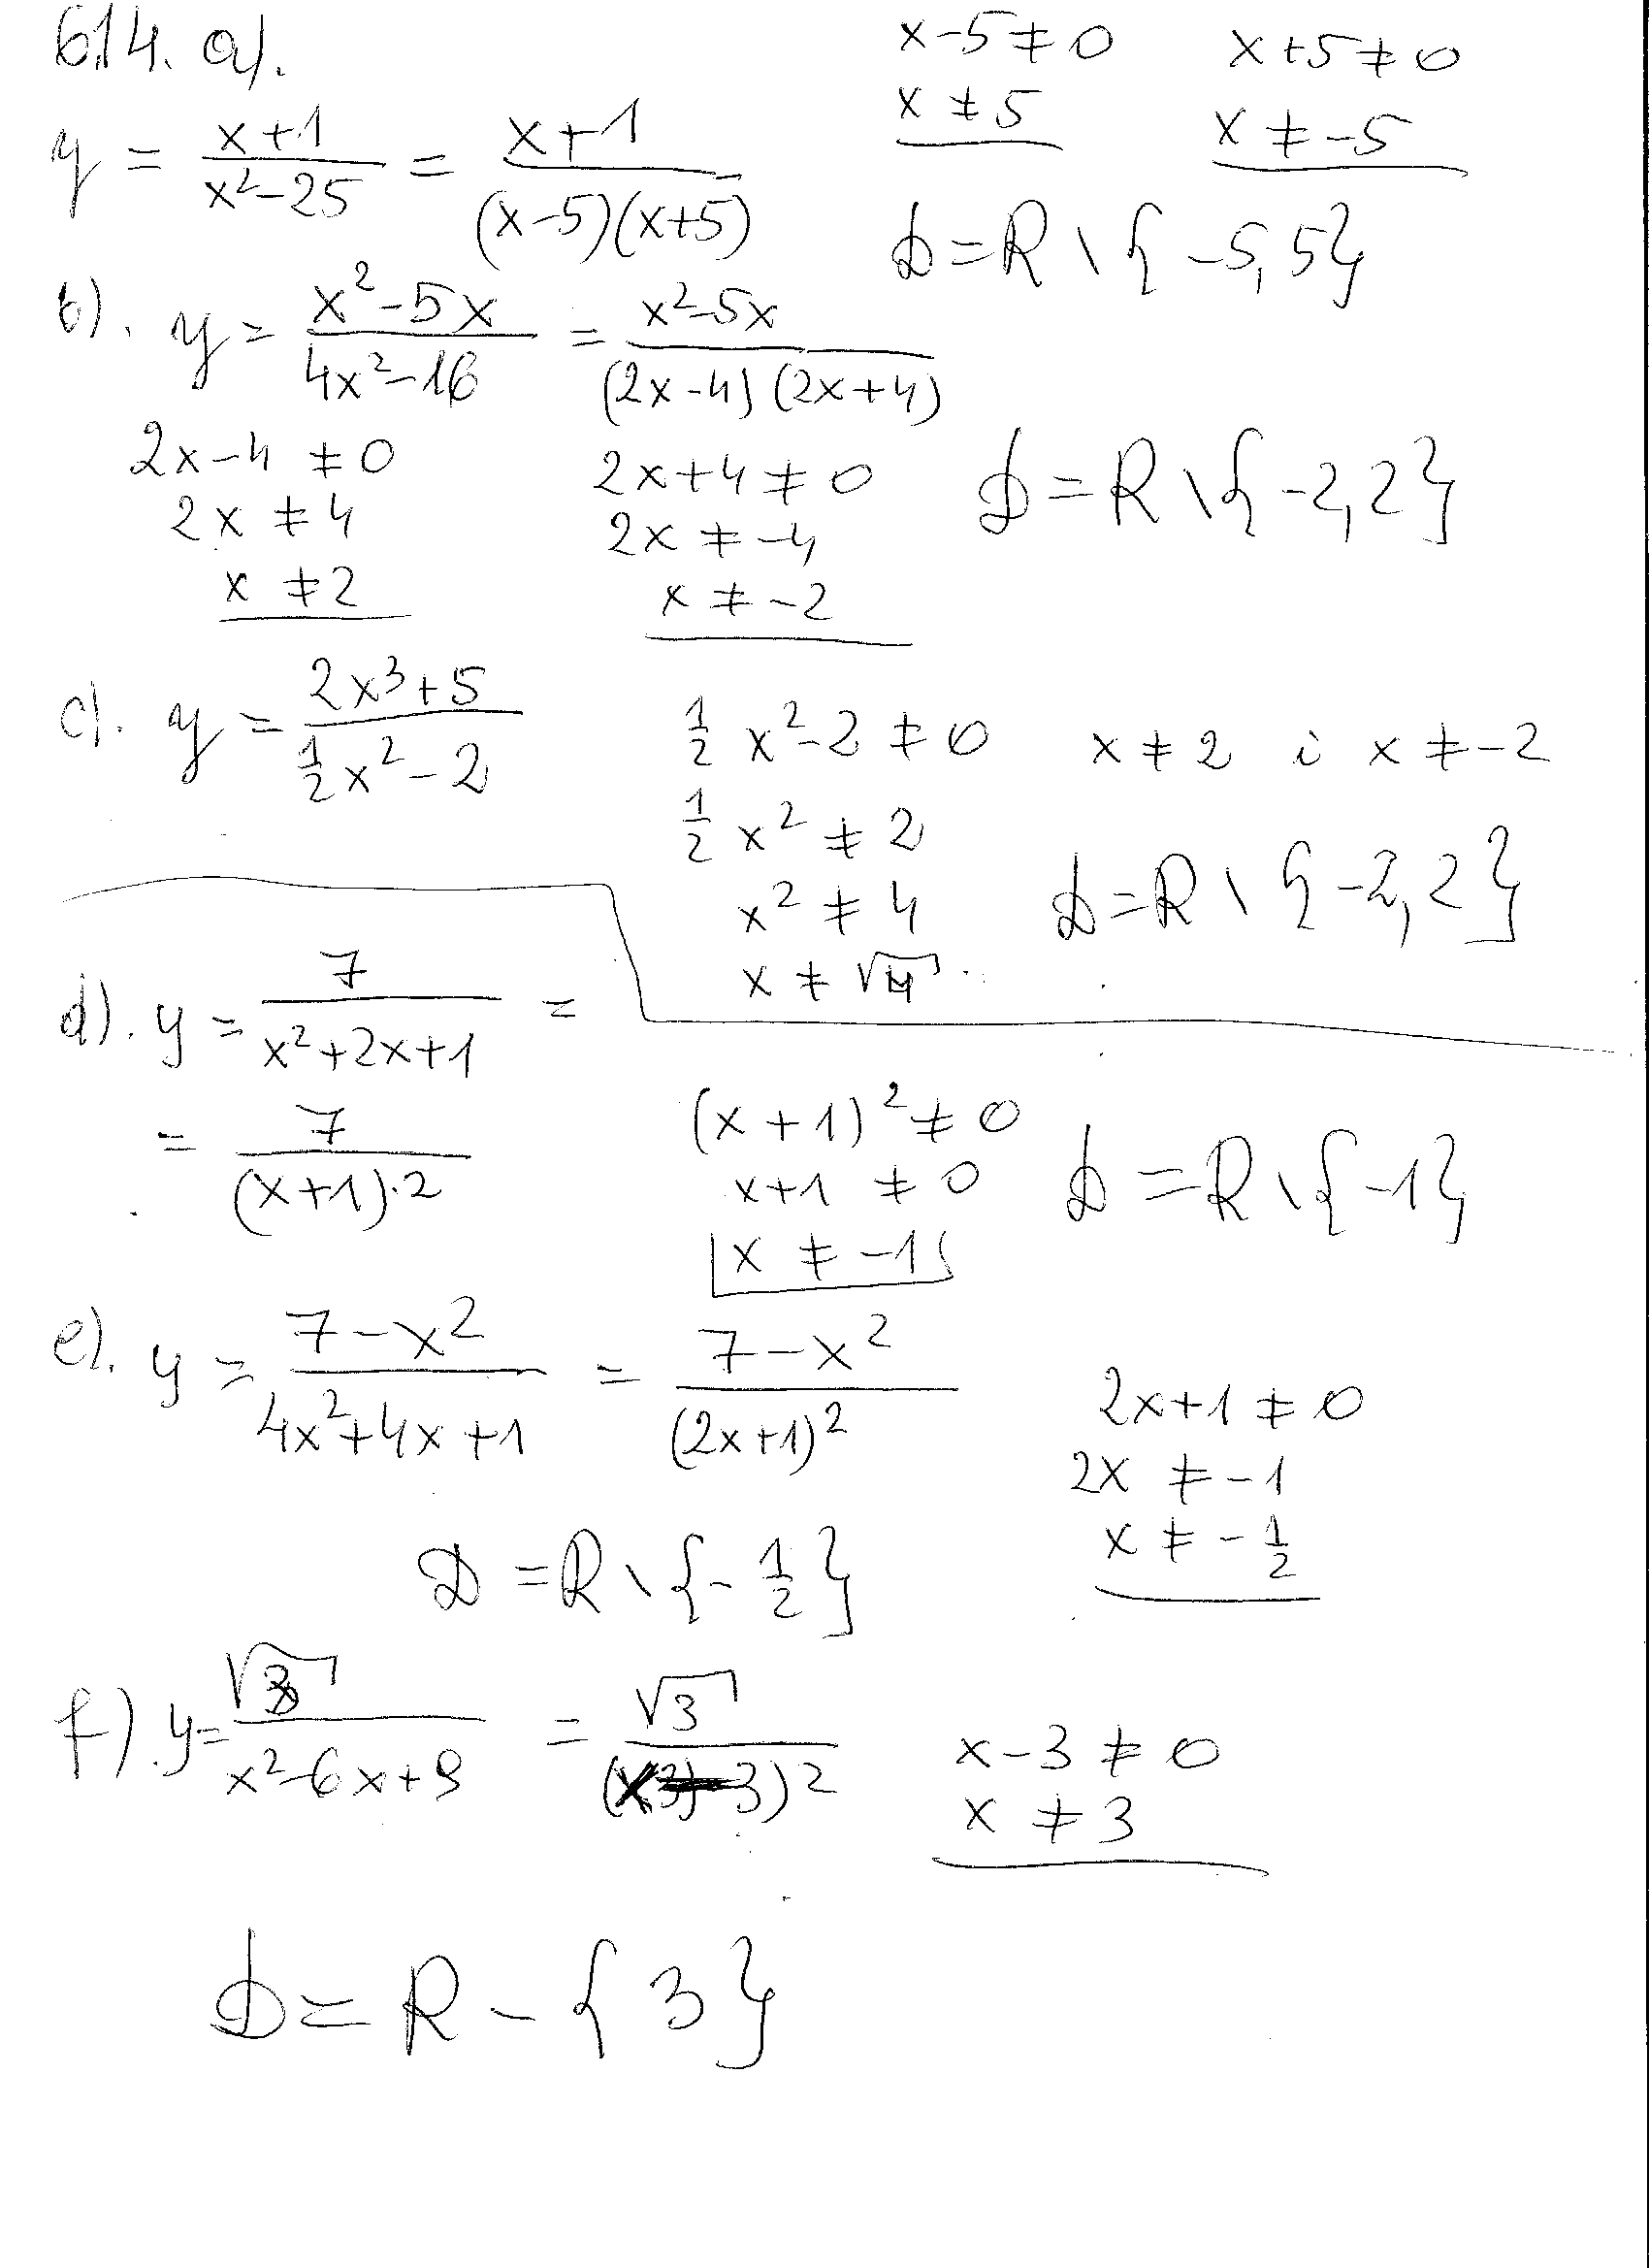 6.14. a).
y = (x+1)/(x²-25) = (x+1)/((x-5)(x+5))
x-5≠0
x≠5
x+5≠0
x≠-5
D=R\{-5,5}
b). y = (x²-5x)/(4x²-16) = (x²-5x)/((2x-4)(2x+4))
2x-4≠0
2x≠4
x≠2
2x+4≠0
2x≠-4
x≠-2
D=R\{-2,2}
c). y = (2x³+5)/(½x²-2)
½x²-2≠0
½x²≠2
x²≠4
x≠√4
x≠2 i x≠-2
D=R\{-2,2}
d). y = 7/(x²+2x+1) =
= 7/(x+1)²
(x+1)²≠0
x+1≠0
x≠-1
D=R\{-1}
e). y = (7-x²)/(4x²+4x+1) = (7-x²)/(2x+1)²
2x+1≠0
2x≠-1
x≠-½
D=R\{-½}
f). y = √3/(x²-6x+9) = √3/(x-3)²
x-3≠0
x≠3
D=R-{3}